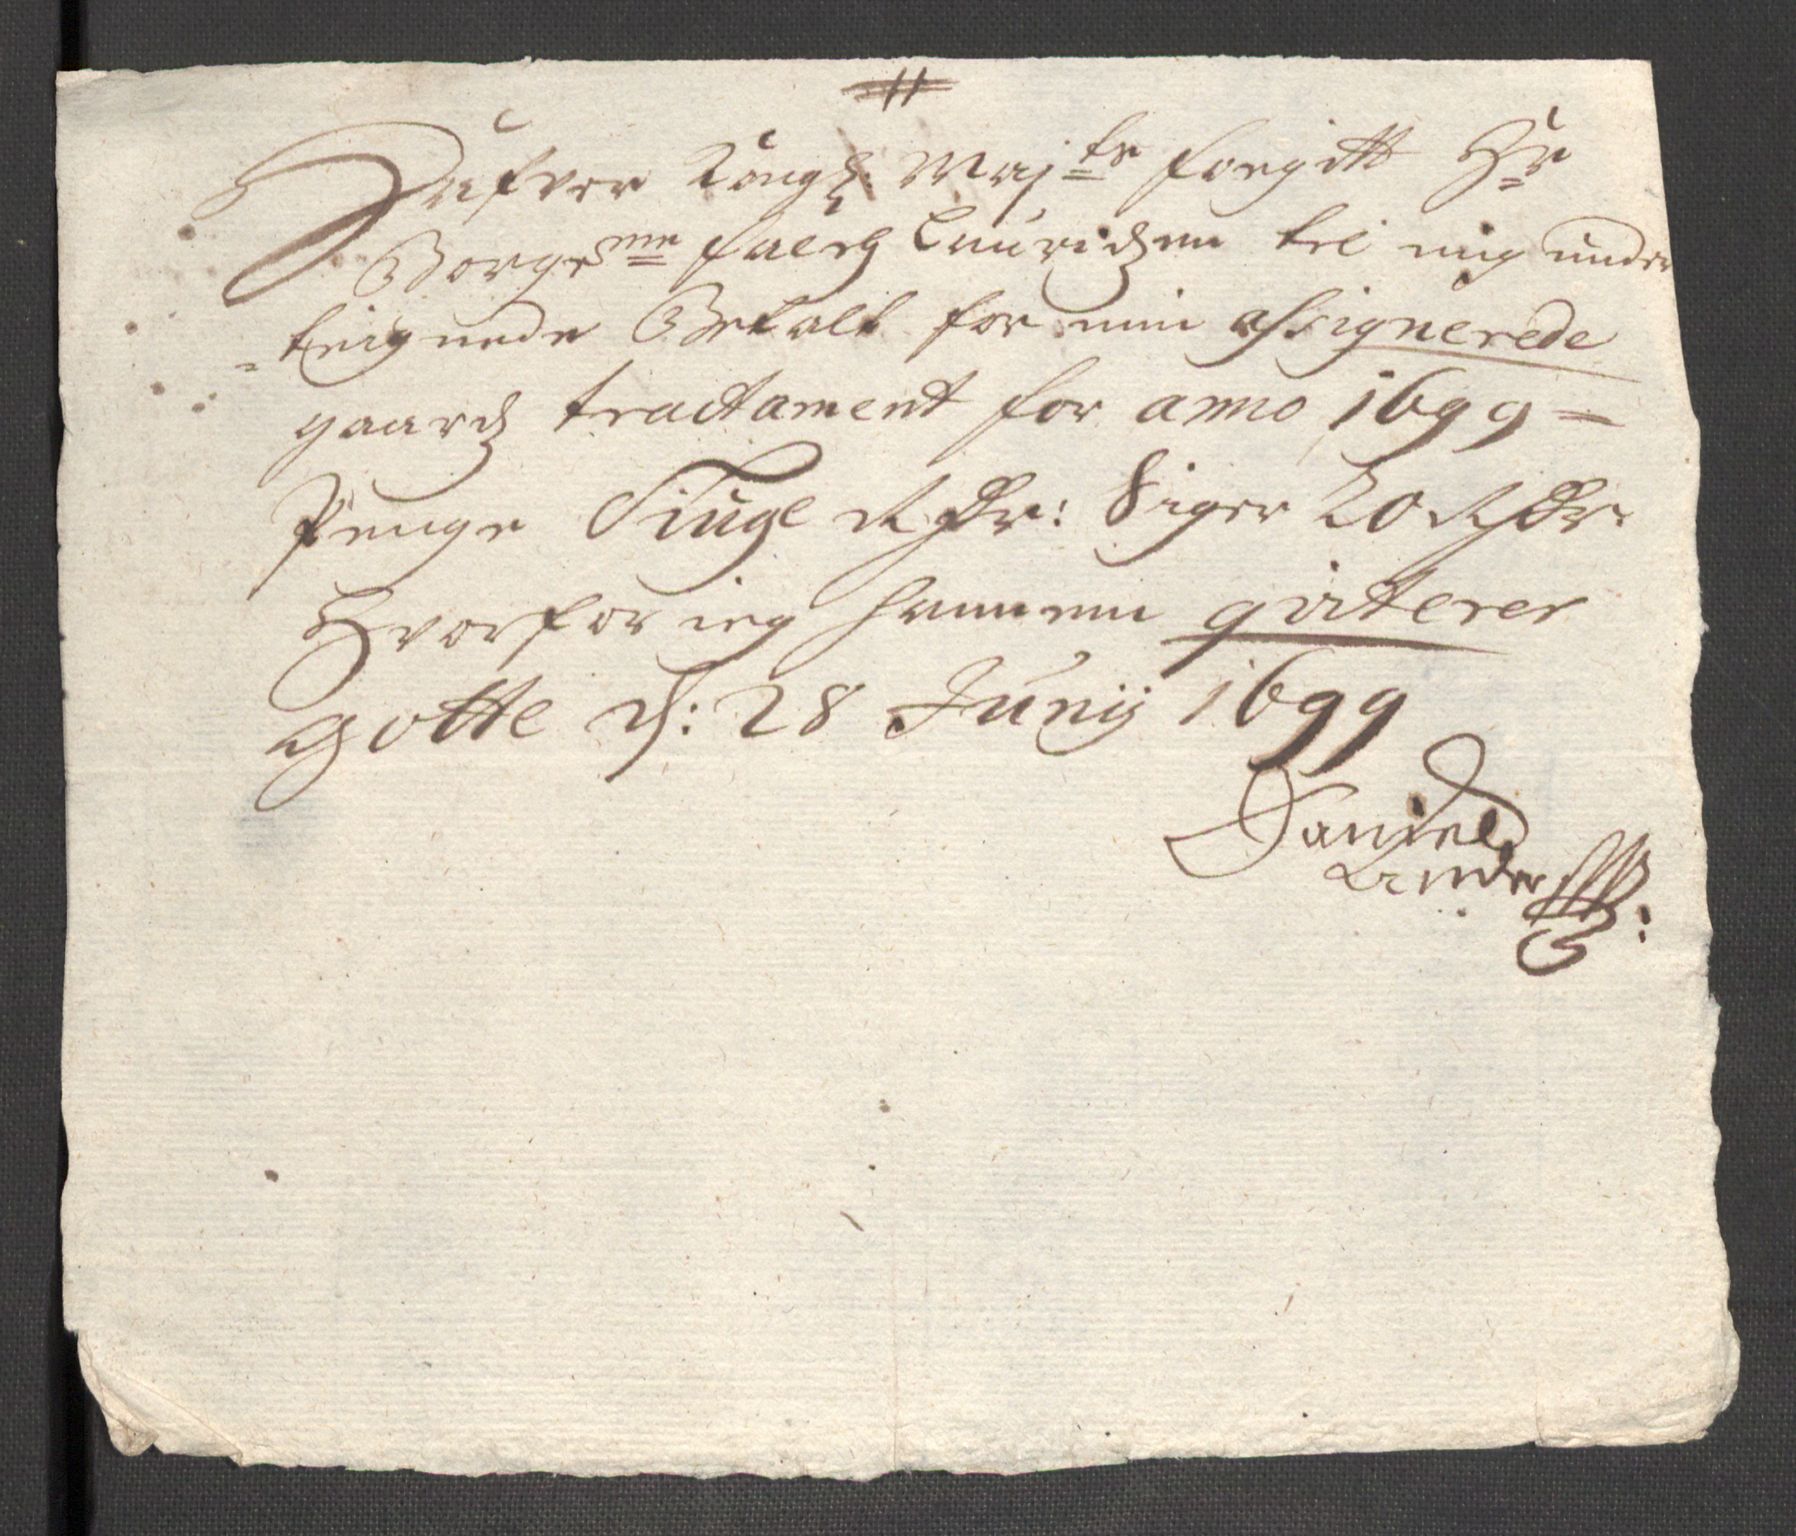 11
Hafver Kongl: Maj:ts fougitt Hr
Borge:mr falch Lauridzen til mig under
teignede Betalt for min assignerede
gaardz tractament for anno 1699 =
Penge Tiuge Rdr: siger 20 Rdr:
Hvorfor ieg hannem qviterer
d: 28 Junij 1699
Daniel